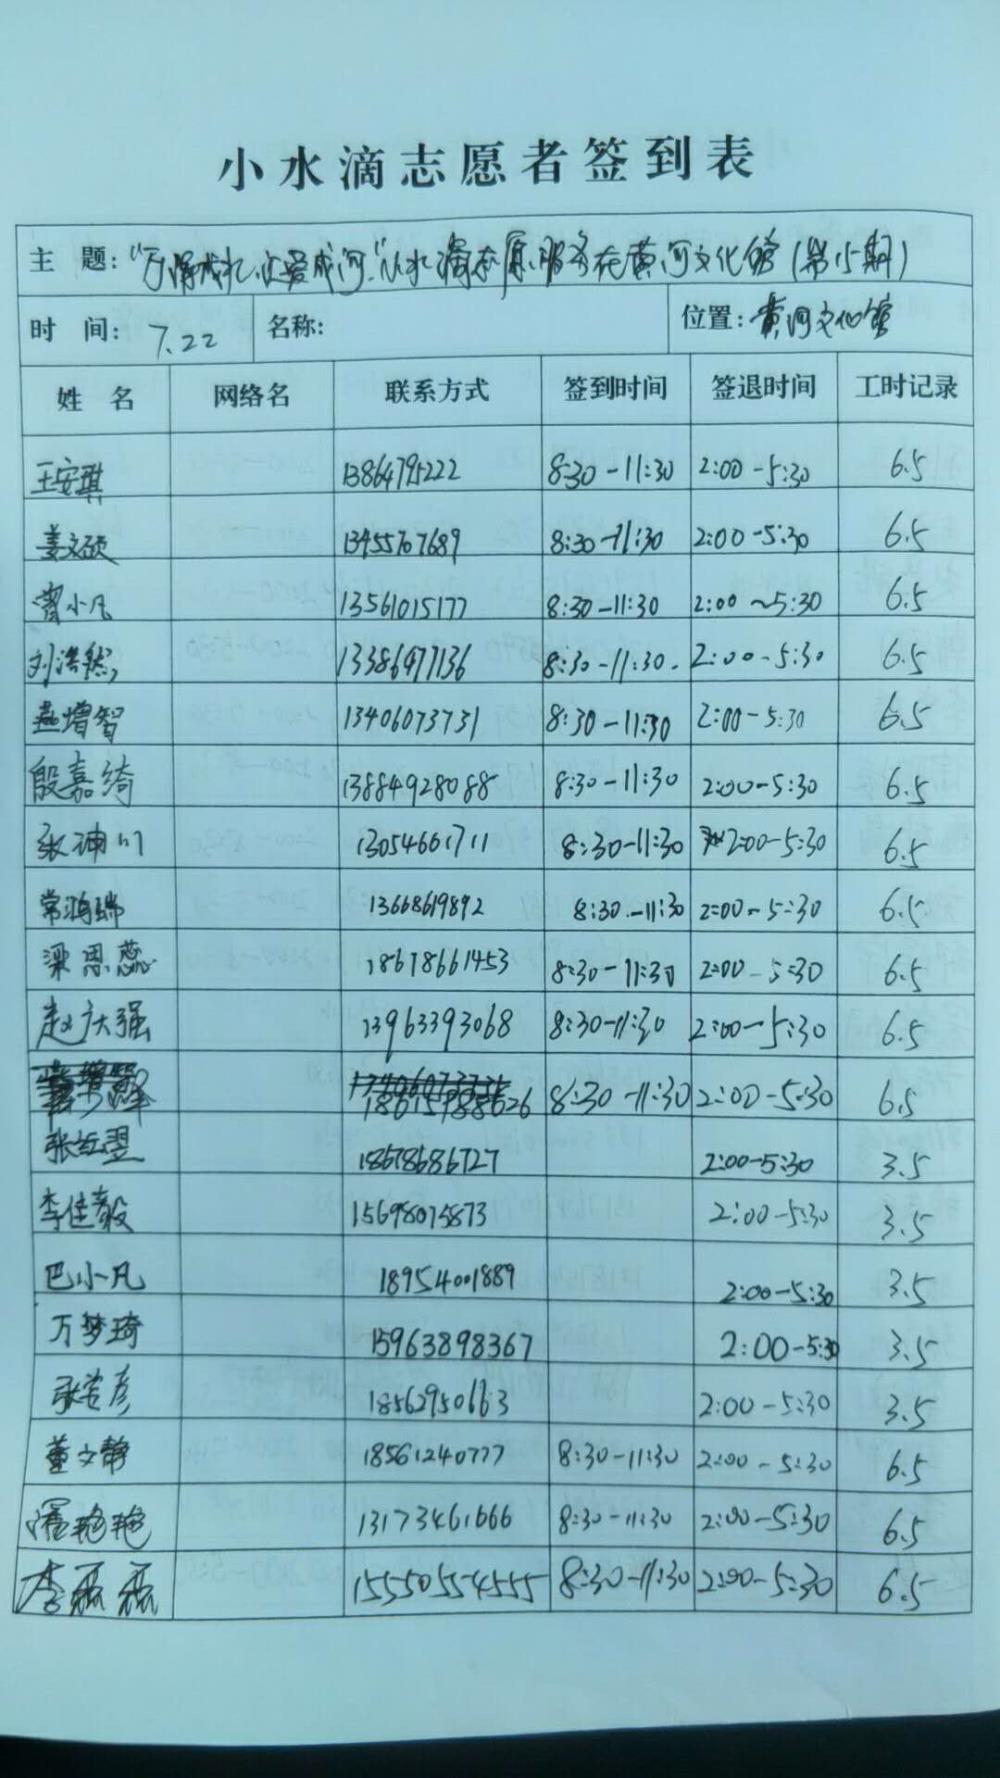 小水滴志愿者签到表
主 题：“万滴成礼，让爱成河”小水滴志愿服务在黄河文化馆（第15期）
时 间：7.22 名称： 位置：黄河文化馆
姓 名 网络名 联系方式 签到时间 签退时间 工时记录
王安琪 13864795222 8:30-11:30 2:00-5:30 6.5
姜文硕 13455767689 8:30-11:30 2:00-5:30 6.5
曹小凡 13561015177 8:30-11:30 2:00~5:30 6.5
刘浩然 13386977136 8:30-11:30. 2:00-5:30 6.5
燕增智 13406073731 8:30-11:30 2:00-5:30 6.5
殷嘉绮 13884928088 8:30-11:30 2:00-5:30 6.5
张 13054661711 8:30-11:30 2:00-5:30 6.5
常鸿瑞 13668619892 8:30-11:30 2:00-5:30 6.5
梁思蕊 18678661453 8:30-11:30 2:00-5:30 6.5
赵庆强 13963393068 8:30-11:30 2:00-5:30 6.5
18615988626 8:30-11:30 2:00-5:30 6.5
张红翌 18678686727 2:00-5:30 3.5
李佳毅 15698075873 2:00-5:30 3.5
巴小凡 18954001889 2:00-5:30 3.5
万梦琦 15963898367 2:00-5:30 3.5
张芸彦 18562950663 2:00-5:30 3.5
董文静 18561240777 8:30-11:30 2:00-5:30 6.5
艳艳 13173461666 8:30-11:30 2:00-5:30 6.5
李磊磊 15550554555 8:30-11:30 2:00-5:30 6.5